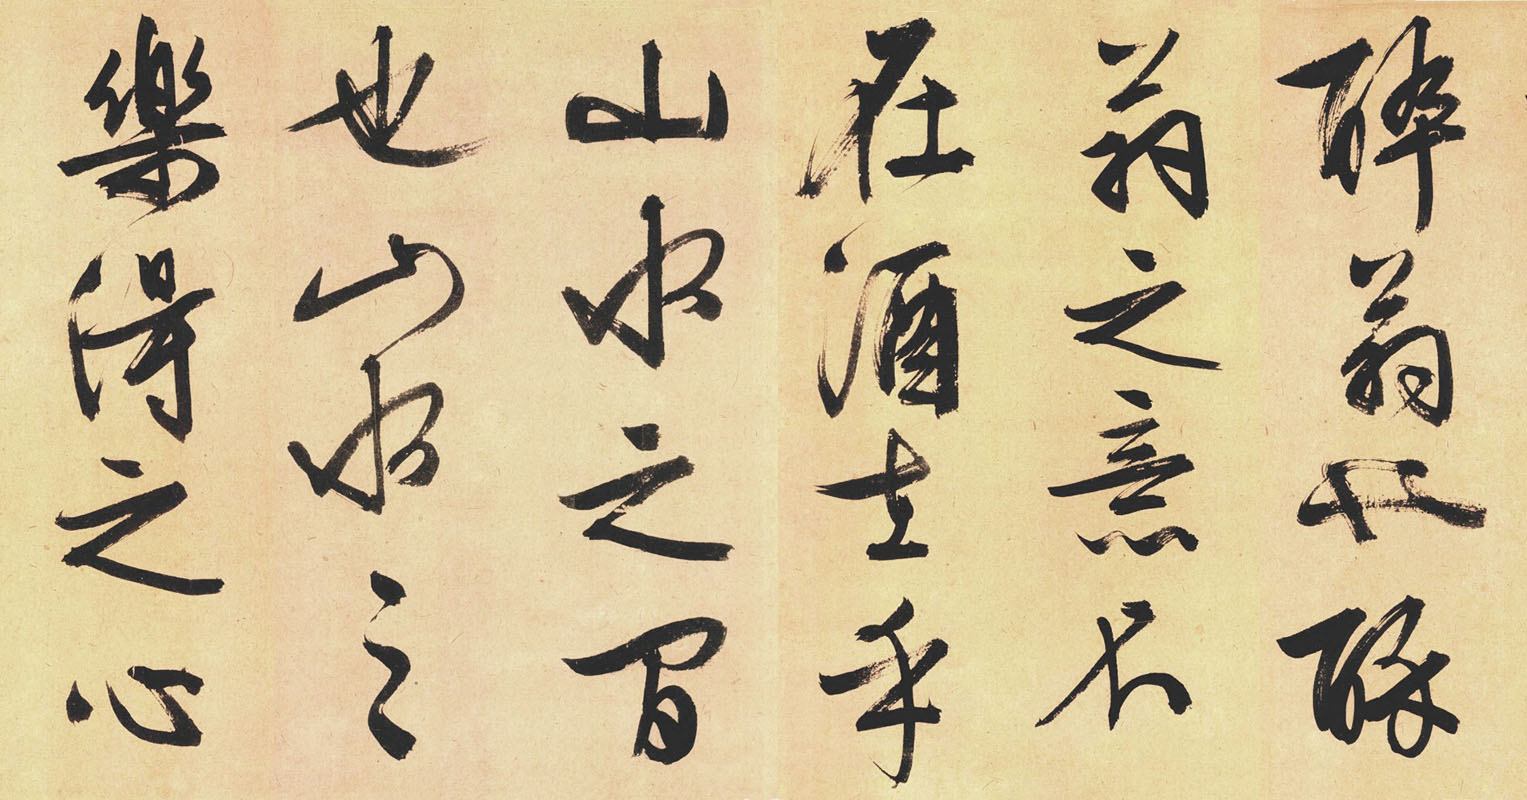 醉翁也醉
翁之意不
在酒在乎
山水之間
也山水之
樂得之心